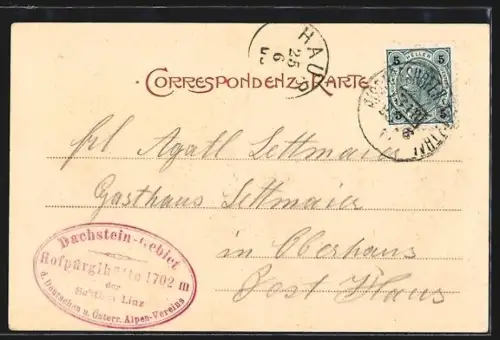 HAUS
25 6
CORRESPONDENZ-KARTE
5 HELLER 5
5 5
frl Agatl Lettmaier
Gasthaus Lettmaier
in Oberhaus
Post Haus
Dachstein-Gebiet
Hofpürglhütte 1702 m
der
Section Linz
d. Deutschen u. Österr. Alpen-Vereins